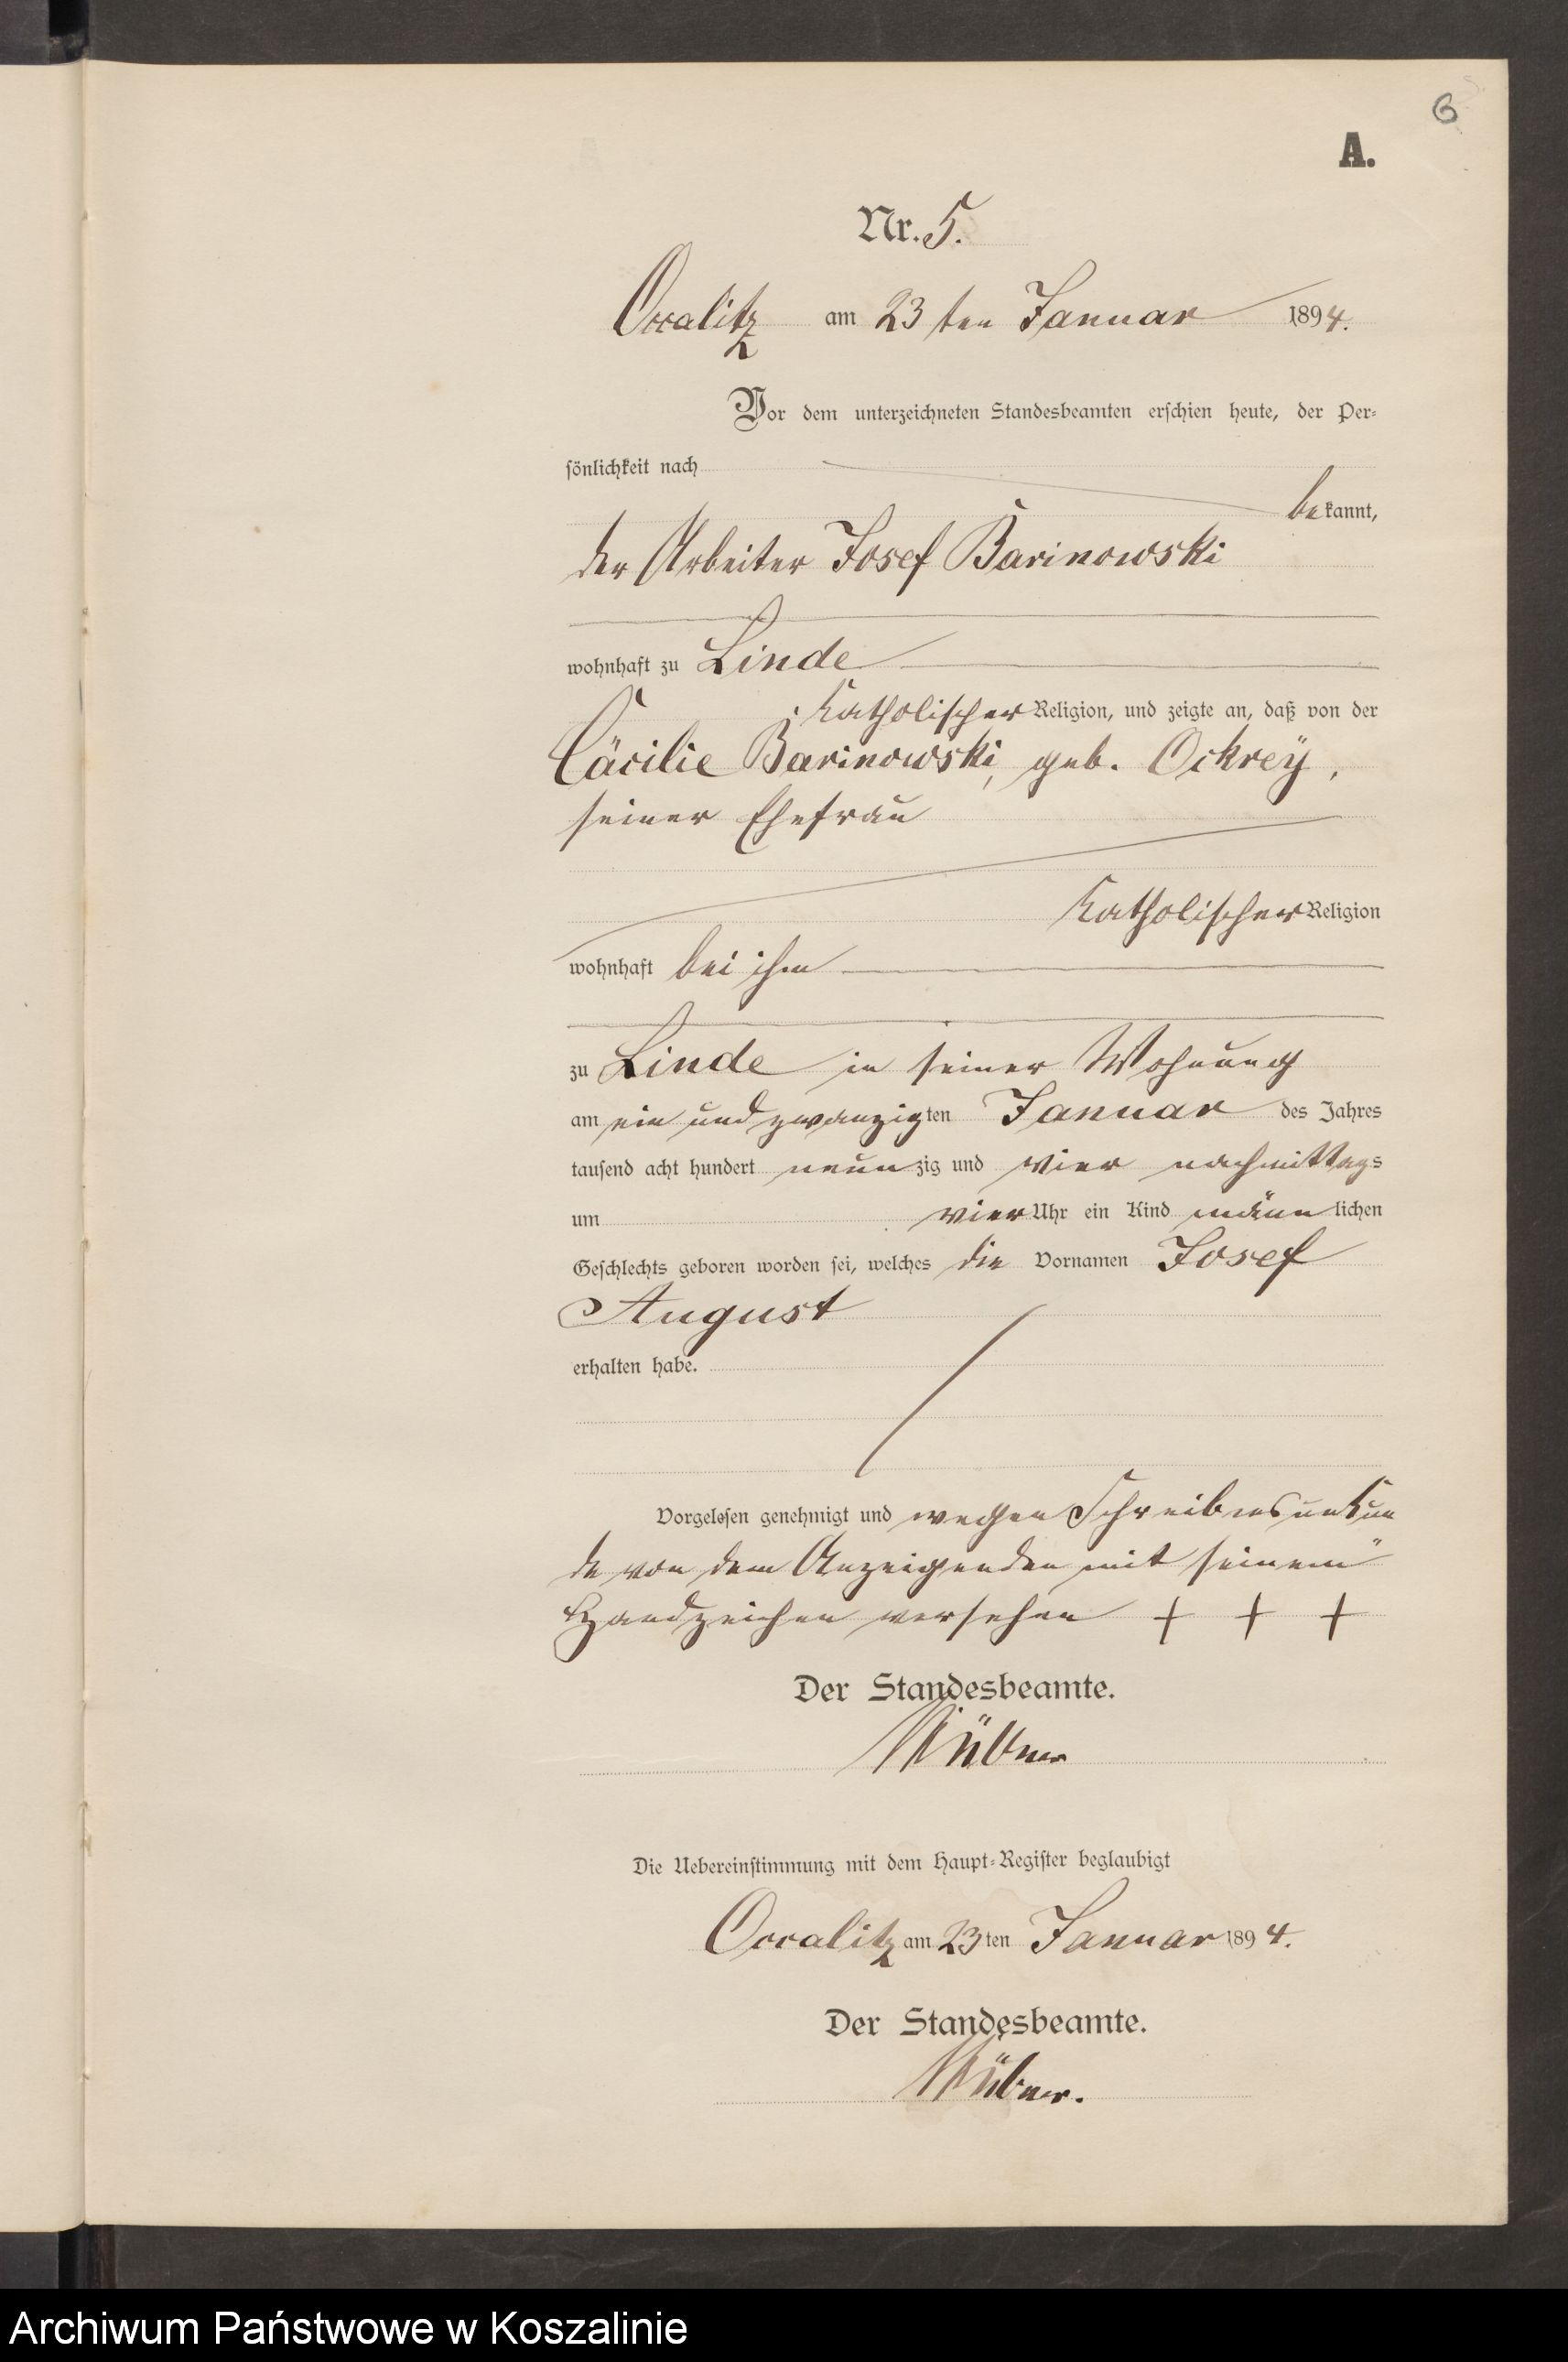 6
A.
Nr. 5.
Occalitz am 23 ten Januar 1894.
Vor dem unterzeichneten Standesbeamten erschien heute, der Per-
sönlichkeit nach
bekannt,
der Arbeiter Josef Barinowski
wohnhaft zu Linde
katholischer Religion, und zeigte an, daß von der
Cäcilie Barinowski, geb. Ockrey,
seiner Ehefrau
katholischer Religion
wohnhaft bei ihm
zu Linde in seiner Wohnung
am ein und zwanzigten Januar des Jahres
tausend acht hundert neunzig und vier nachmittags
um vier Uhr ein Kind männlichen
Geschlechts geboren worden sei, welches die Vornamen Josef
August
erhalten habe.
Vorgelesen genehmigt und wegen Schreibensunkun
de von dem Anzeigenden mit seinem
Handzeichen versehen + + +
Der Standesbeamte.
Die Uebereinstimmung mit dem Haupt-Register beglaubigt
Occalitz am 23 ten Januar 1894.
Der Standesbeamte.
Archiwum Państwowe w Koszalinie